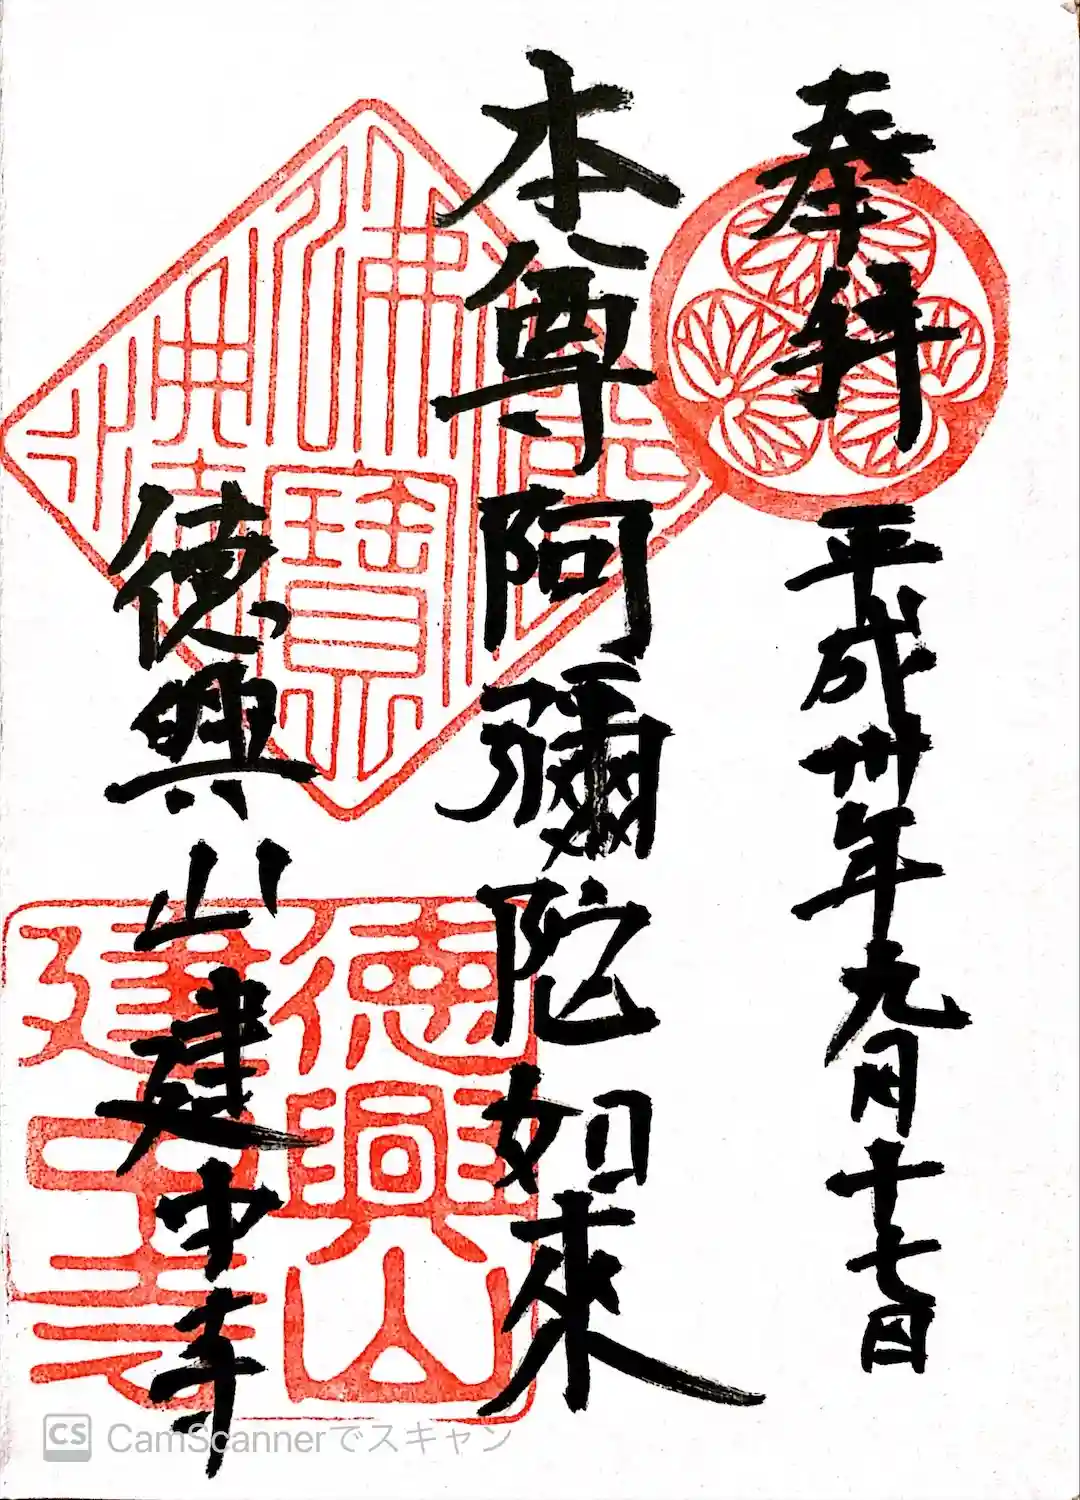 奉拝
平成卅年九月十七日
本尊阿彌陀如來
德興山建中寺
佛法僧寶
德興山
建中寺
CS CamScannerでスキャン